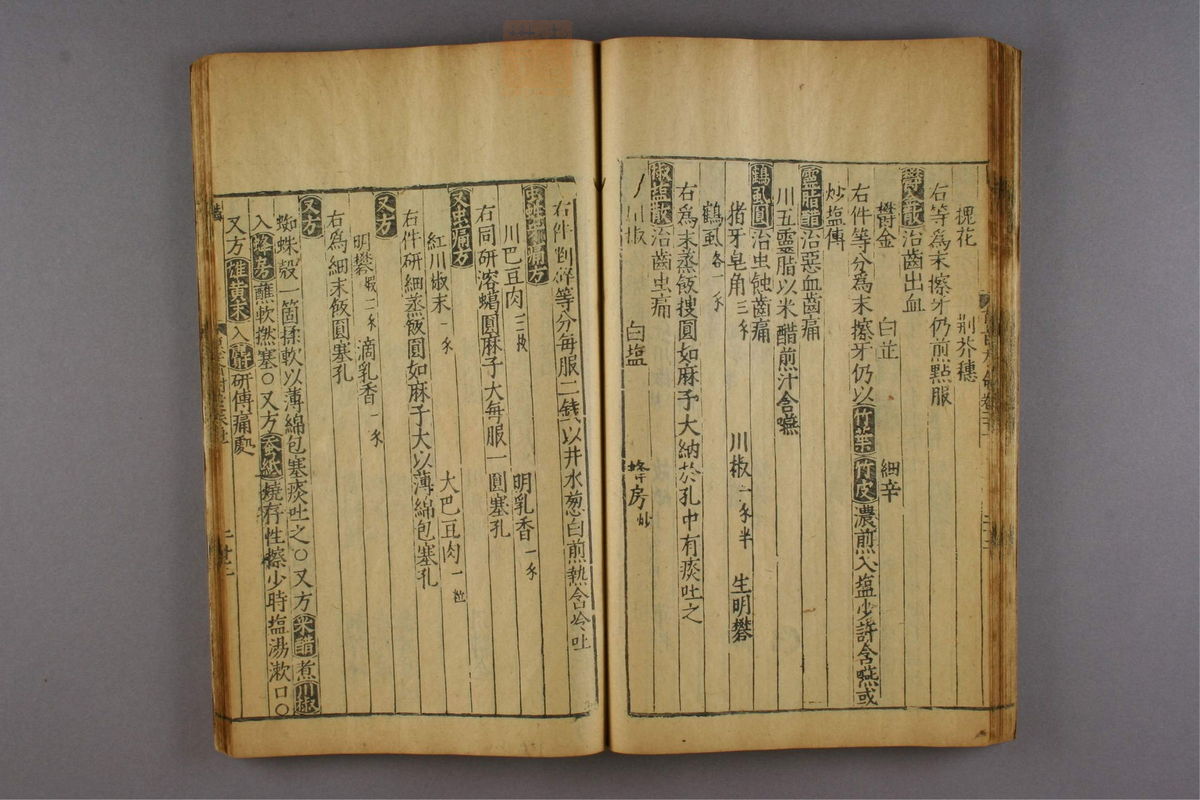 槐花 荆芥穗
右等為末擦牙仍煎點服
鬱金散治齒出血
鬱金 白芷 細辛
右件等分為末擦牙仍以竹葉竹皮濃煎入塩少許含嚥或
炒塩傅
靈脂醋治惡血齒痛
川五靈脂以米醋煎汁含嚥
鶴虱圓治虫蝕齒痛
猪牙皂角三 川椒二 半 生明礬
鶴虱各一
右為末蒸飯搜圓如麻子大納於孔中有痰吐之
椒塩散治齒虫痛
川椒 白塩 蜂房炒
右件剉碎等分每服二錢以井水葱白煎熱含冷吐
虫蛀 痛方
川巴豆肉三枚 明乳香一
右同研溶蠟圓麻子大每服一圓塞孔
又虫痛方
紅川椒末一 大巴豆肉一粒
右件研細蒸飯圓如麻子大以薄綿包塞孔
又方
明礬煅二 滴乳香一
右為細末飯圓塞孔
又方
蜘蛛殼一箇揉軟以薄綿包塞痰吐之○又方米醋煮川椒
入蜂房蘸軟撚塞○又方蚕紙燒存性擦少時塩湯漱口○
又方雄黄末入 研傅痛處